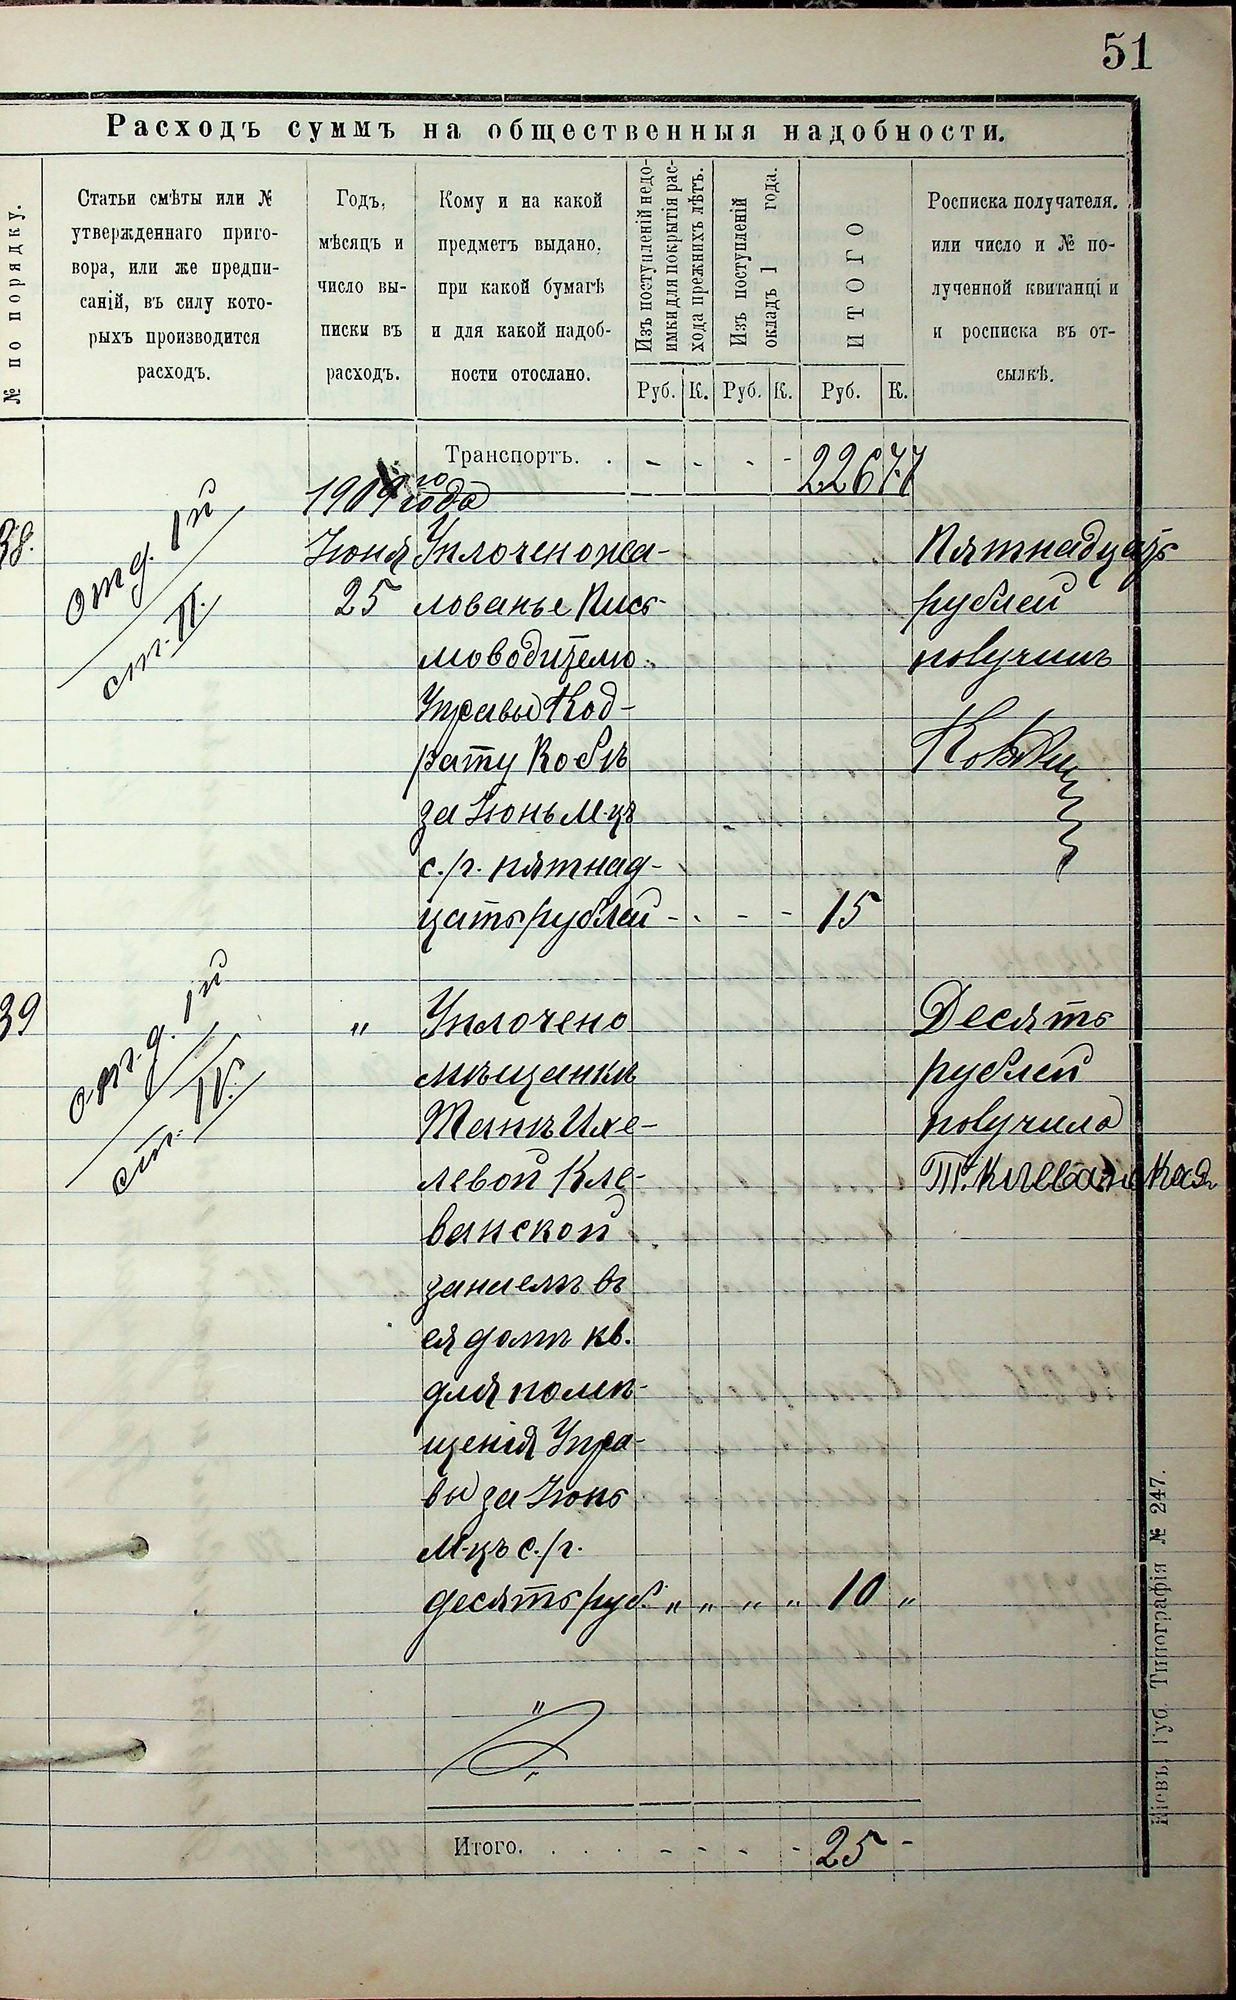 51
Расходъ суммъ на общественныя надобности.
№ по порядку.
Статьи смѣты или №
утвержденнаго приго-
вора, или же предпи-
саній, въ силу кото-
рыхъ производится
расходъ.
Годъ,
мѣсяцъ и
число вы-
писки въ
расходъ.
Кому и на какой
предметъ выдано,
при какой бумагѣ
и для какой надоб-
ности отослано.
Изъ поступленій недо-
имки для покрытія рас-
хода прежнихъ лѣтъ.
Изъ поступленій
окладъ 1 года.
ИТОГО
Росписка получателя.
или число и № по-
лученной квитанці и
и росписка въ от-
сылкѣ.
Руб. К. Руб. К. Руб. К.
Транспортъ. . - - - - 226 77
1909 го года
38.
отд. 1й
ст. II.
Іюня
25
Уплочено жа-
лованье Пись-
моводителю
Управы Код-
рату Кобъ
за Іюнь М-цъ
с./г. пятнад-
цать рублей - - - - 15
Пятнадцать
рублей
получилъ
39
отд. 1й
ст. IV.
"
Уплочено
мѣщанкѣ
Танѣ Ихе-
левой Кле-
ванской
за наемъ въ
ея домѣ кв.
для помѣ-
щенія Упра-
вы за Іюнь
М-цъ с./г.
десять руб. " " " " 10 "
Десять
рублей
получила
Т. Клеванская
"
Итого. . . . - - - - 25 -
Кіевъ, Губ. Типографія № 247.